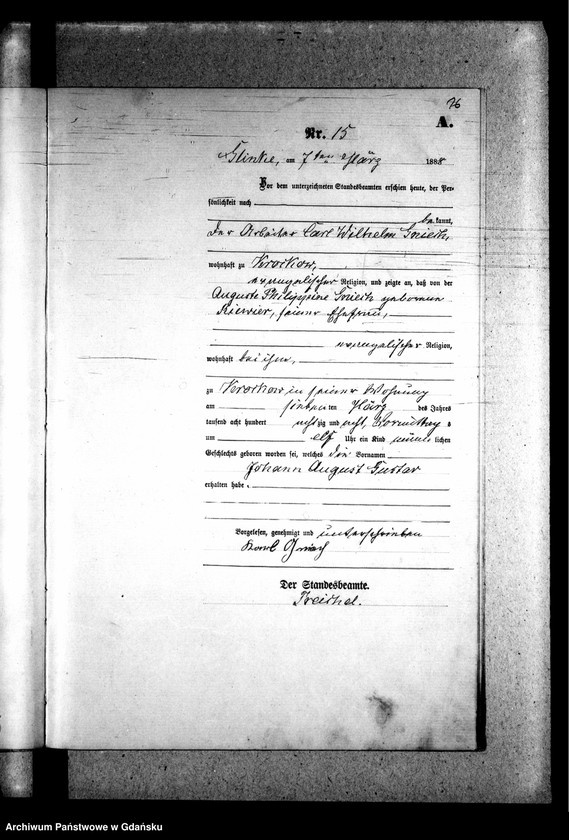 76
A.
Nr. 15
Glinke, am 7ten März 1888
Vor dem unterzeichneten Standesbeamten erschien heute, der Per-
sönlichkeit nach
be kannt,
der Arbeiter Carl Wilhelm Gniech,
wohnhaft zu Krockow,
evangelischer Religion, und zeigte an, daß von der
Auguste Philippine Gniech geborenen
seiner Ehefrau,
evangelischer Religion,
wohnhaft bei ihm,
zu Krockow in seiner Wohnung
am sieben ten März des Jahres
tausend acht hundert achtzig und acht, Vormittags
um elf Uhr ein Kind männlichen
Geschlechts geboren worden sei, welches die Vornamen
Johann August Gustav
erhalten habe.
Vorgelesen, genehmigt und unterschrieben
Karl Gniech
Der Standesbeamte.
Archiwum Państwowe w Gdańsku